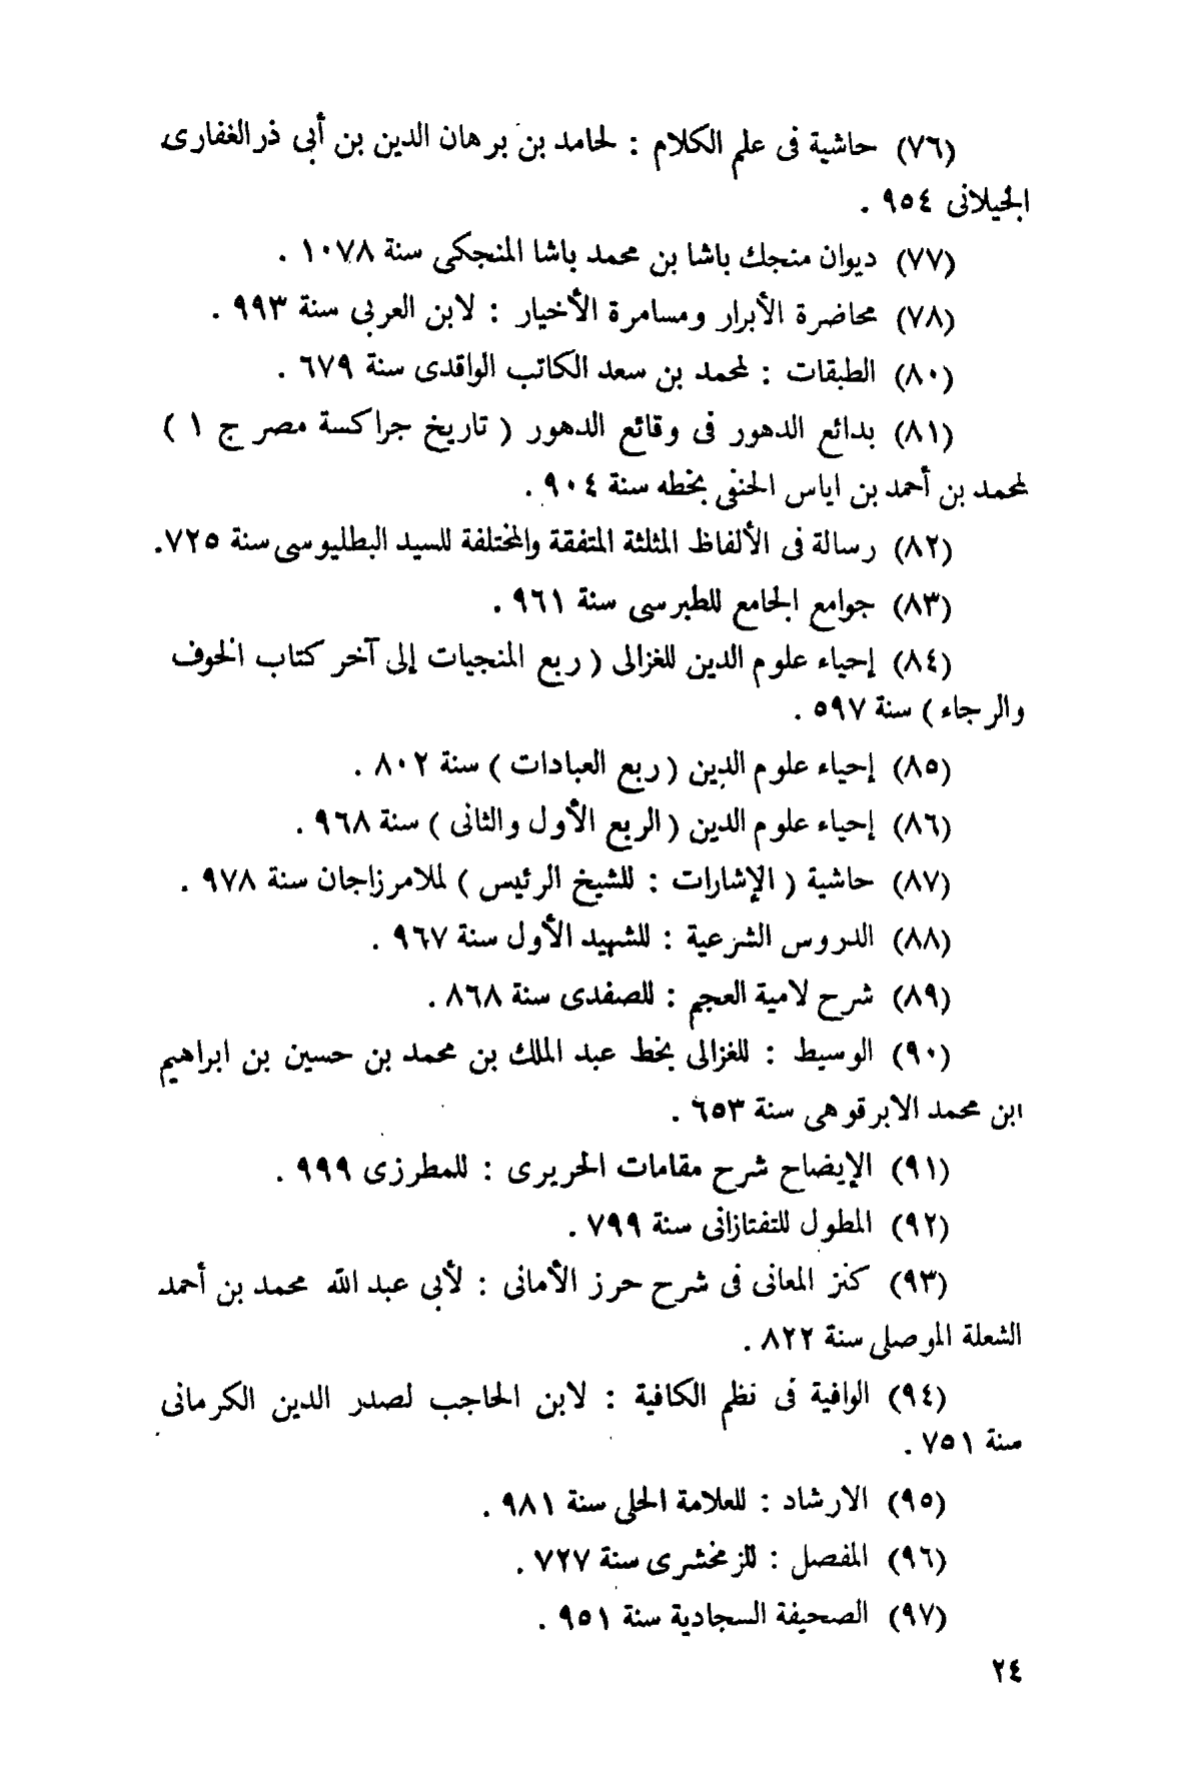 (٧٦) حاشية فى علم الكلام : لحامد بن برهان الدين بن أبى ذرالغفارى
الجيلانى ٩٥٤ .
(٧٧) ديوان منجك باشا بن محمد باشا المنجكى سنة ١٠٧٨ .
(٧٨) محاضرة الأبرار ومسامرة الأخيار : لابن العربى سنة ٩٩٣ .
(٨٠) الطبقات : لمحمد بن سعد الكاتب الواقدى سنة ٦٧٩ .
(٨١) بدائع الدهور فى وقائع الدهور ( تاريخ جراكسة مصر ج ١ )
لمحمد بن أحمد بن اياس الحنفى بخطه سنة ٩٠٤ .
(٨٢) رسالة فى الألفاظ المثلثة المتفقة والمختلفة للسيد البطليوسى سنة ٧٢٥.
(٨٣) جوامع الجامع للطبرسى سنة ٩٦١ .
(٨٤) إحياء علوم الدين للغزالى ( ربع المنجيات إلى آخر كتاب الخوف
والرجاء ) سنة ٥٩٧ .
(٨٥) إحياء علوم الدين ( ربع العبادات ) سنة ٨٠٢ .
(٨٦) إحياء علوم الدين ( الربع الأول والثانى ) سنة ٩٦٨ .
(٨٧) حاشية ( الإشارات : للشيخ الرئيس ) لملامرزاجان سنة ٩٧٨ .
(٨٨) الدروس الشرعية : للشهيد الأول سنة ٩٦٧ .
(٨٩) شرح لامية العجم : للصفدى سنة ٨٦٨ .
(٩٠) الوسيط : للغزالى بخط عبد الملك بن محمد بن حسين بن ابراهيم
ابن محمد الابرقوهى سنة ٦٥٣ .
(٩١) الإيضاح شرح مقامات الحريرى : للمطرزى ٩٩٩ .
(٩٢) المطول للتفتازانى سنة ٧٩٩ .
(٩٣) كنز المعانى فى شرح حرز الأمانى : لأبى عبد الله محمد بن أحمد
الشعلة الموصلى سنة ٨٢٢ .
(٩٤) الوافية فى نظم الكافية : لابن الحاجب لصدر الدين الكرمانى
سنة ٧٥١ .
(٩٥) الارشاد : للعلامة الحلى سنة ٩٨١ .
(٩٦) المفصل : للزمخشرى سنة ٧٢٧ .
(٩٧) الصحيفة السجادية سنة ٩٥١ .
٢٤